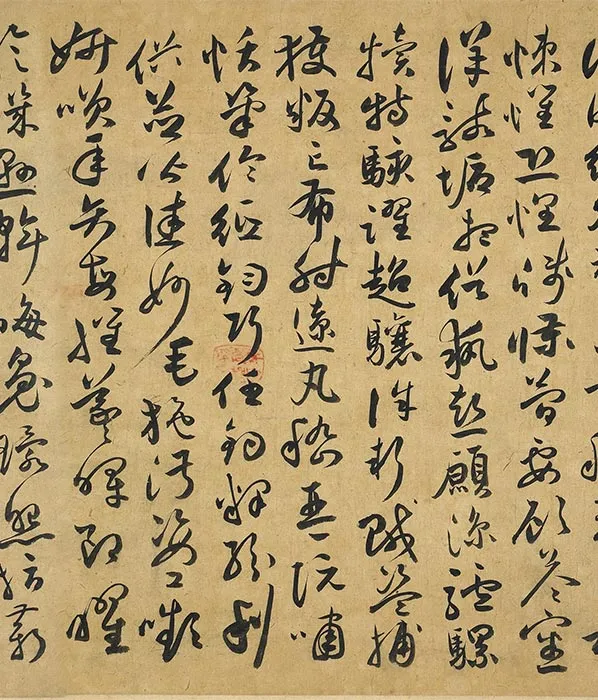 悚懼恐惶牋牒簡要顧答審
詳骸垢想浴執熱願涼驢騾
犢特駭躍超驤誅斬賊盜捕
獲叛亡布射遼丸嵇琴阮嘯
恬筆倫紙鈞巧任釣釋紛利
俗並皆佳妙毛施淑姿工顰
妍笑年矢每催羲暉朗曜
璣懸斡晦魄環照指薪